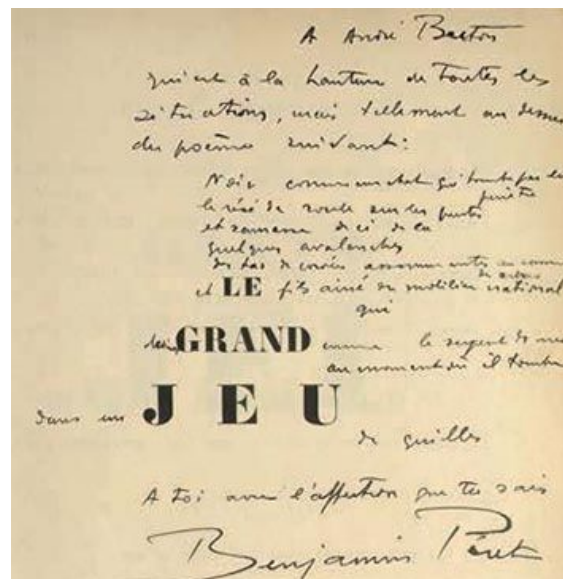 A André Breton
qui est à la hauteur de toutes les
situations, mais tellement au dessus
du poème suivant:
Noir comme un chat qui tombe par la
fenêtre
le rusé de route sur les
et ramasse de ci de là
quelques avalanches
des tas de
et LE fils ainé du mobilier national
qui
GRAND comme le serpent de mer
au moment où il tombe
dans un JEU
de quilles
A toi avec l'affection que tu sais
Benjamin Péret